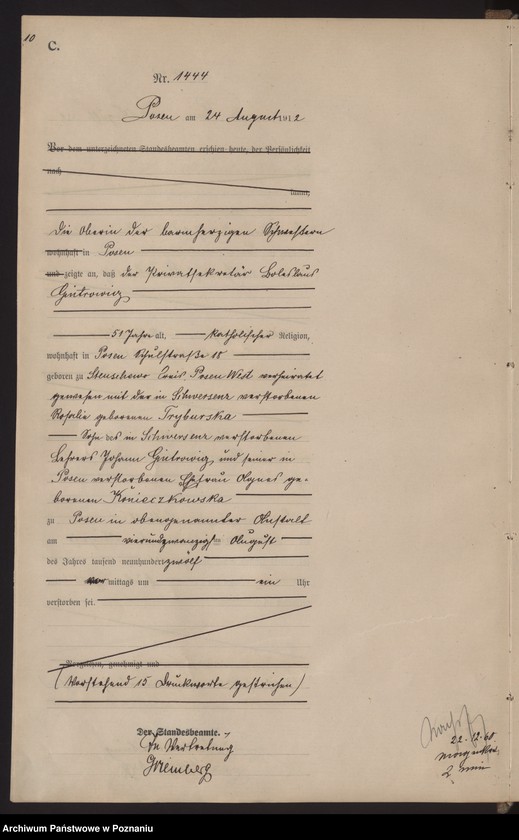 10
C.
Nr. 1444
Posen am 24 August 1912
Vor dem unterzeichneten Standesbeamten erschien heute, der Persönlichkeit
nach
kannt,
die Oberin der barmherzigen Schwestern
wohnhaft in Posen
und zeigte an, daß der Privatsekretär Boleslaus
Gintrowicz
51 Jahre alt, katholischer Religion,
wohnhaft in Posen Schulstraße 18
geboren zu Stenschewo Kreis Posen West verheiratet
gewesen mit der in Schwersenz verstorbenen
Rosalie geborenen Tryburska
Sohn des in Schwersenz verstorbenen
Lehrers Johann Gintrowicz und seiner in
Posen verstorbenen Ehefrau Agnes ge-
borenen Konieczkowska
zu Posen in obengenannter Anstalt
am vierundzwanzigsten August
des Jahres tausend neunhundert zwölf
mittags um ein Uhr
verstorben sei.
Vorgelesen, genehmigt und
(Vorstehend 15 Druckworte gestrichen)
Der Standesbeamte.
In Vertretung
22.12.60
Archiwum Państwowe w Poznaniu